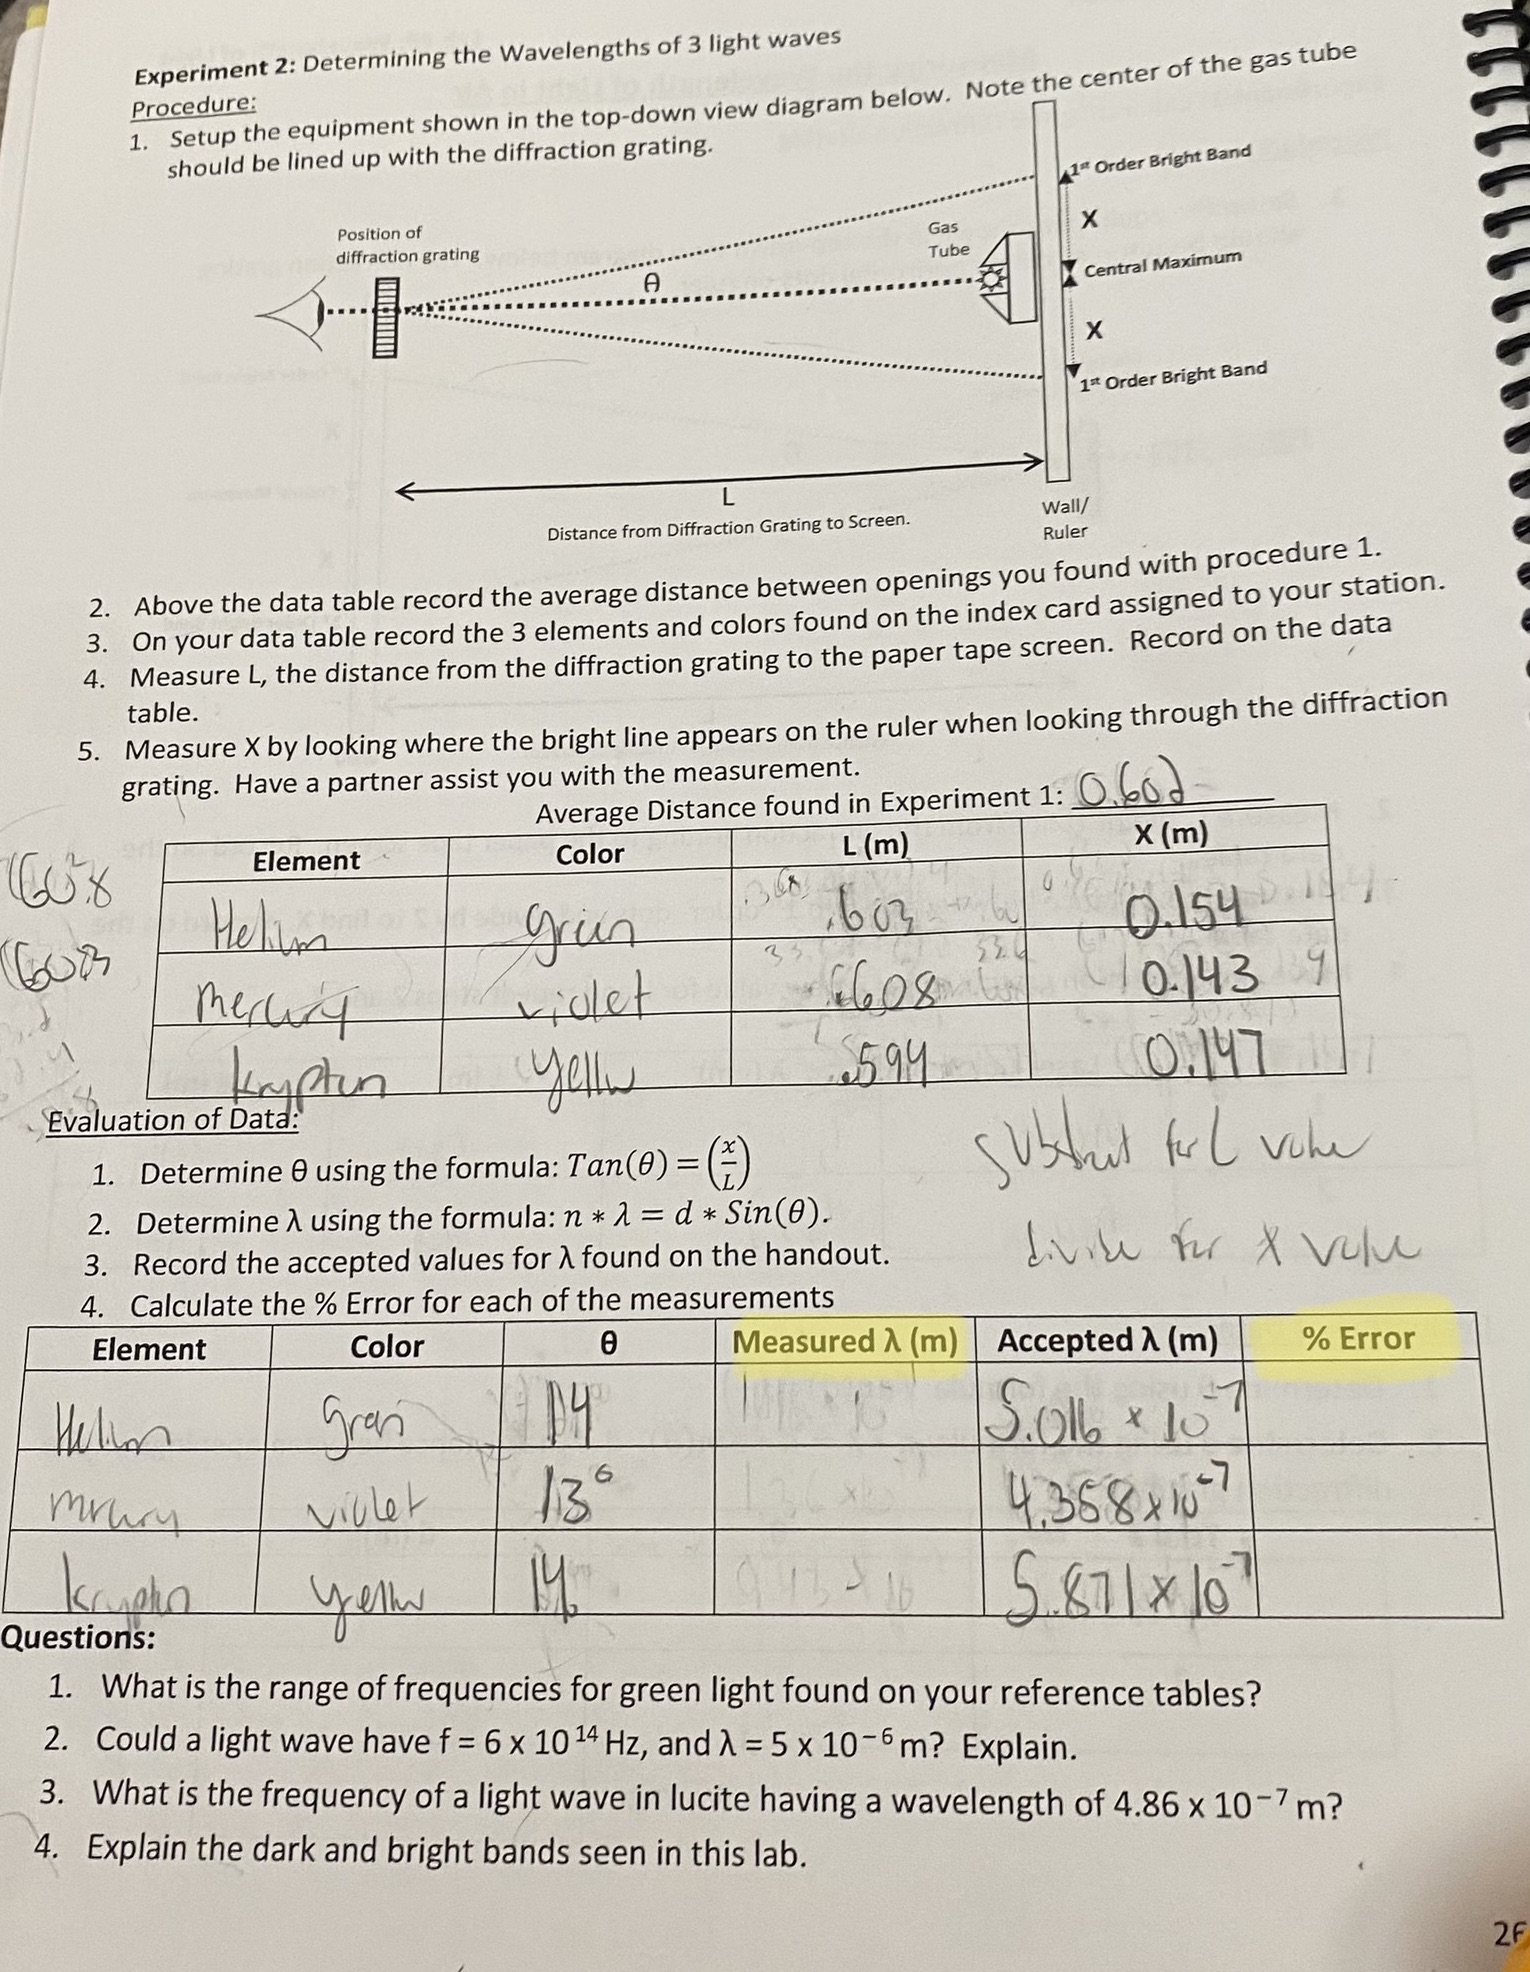 Experiment 2: Determining the Wavelengths of 3 light waves
Procedure:
1. Setup the equipment shown in the top-down view diagram below. Note the center of the gas tube
should be lined up with the diffraction grating.
1st Order Bright Band
X
Position of
diffraction grating
Gas
Tube
θ
Central Maximum
X
1st Order Bright Band
L
Distance from Diffraction Grating to Screen.
Wall/
Ruler
2. Above the data table record the average distance between openings you found with procedure 1.
3. On your data table record the 3 elements and colors found on the index card assigned to your station.
4. Measure L, the distance from the diffraction grating to the paper tape screen. Record on the data
table.
5. Measure X by looking where the bright line appears on the ruler when looking through the diffraction
grating. Have a partner assist you with the measurement.
Average Distance found in Experiment 1: 0.602
Element Color L (m) X (m)
Helium green .603 0.154
mercury violet .608 0.143
krypton yellow .594 0.147
Evaluation of Data:
1. Determine θ using the formula: Tan(θ) = (x/L)
subtract for L value
2. Determine λ using the formula: n * λ = d * Sin(θ).
divide for x value
3. Record the accepted values for λ found on the handout.
4. Calculate the % Error for each of the measurements
Element Color θ Measured λ (m) Accepted λ (m) % Error
Helium 14 5.016 x 10^-7
violet 13° 4.358 x 10^-7
yellow 14 5.871 x 10^-7
Questions:
1. What is the range of frequencies for green light found on your reference tables?
2. Could a light wave have f = 6 x 10^14 Hz, and λ = 5 x 10^-6 m? Explain.
3. What is the frequency of a light wave in lucite having a wavelength of 4.86 x 10^-7 m?
4. Explain the dark and bright bands seen in this lab.